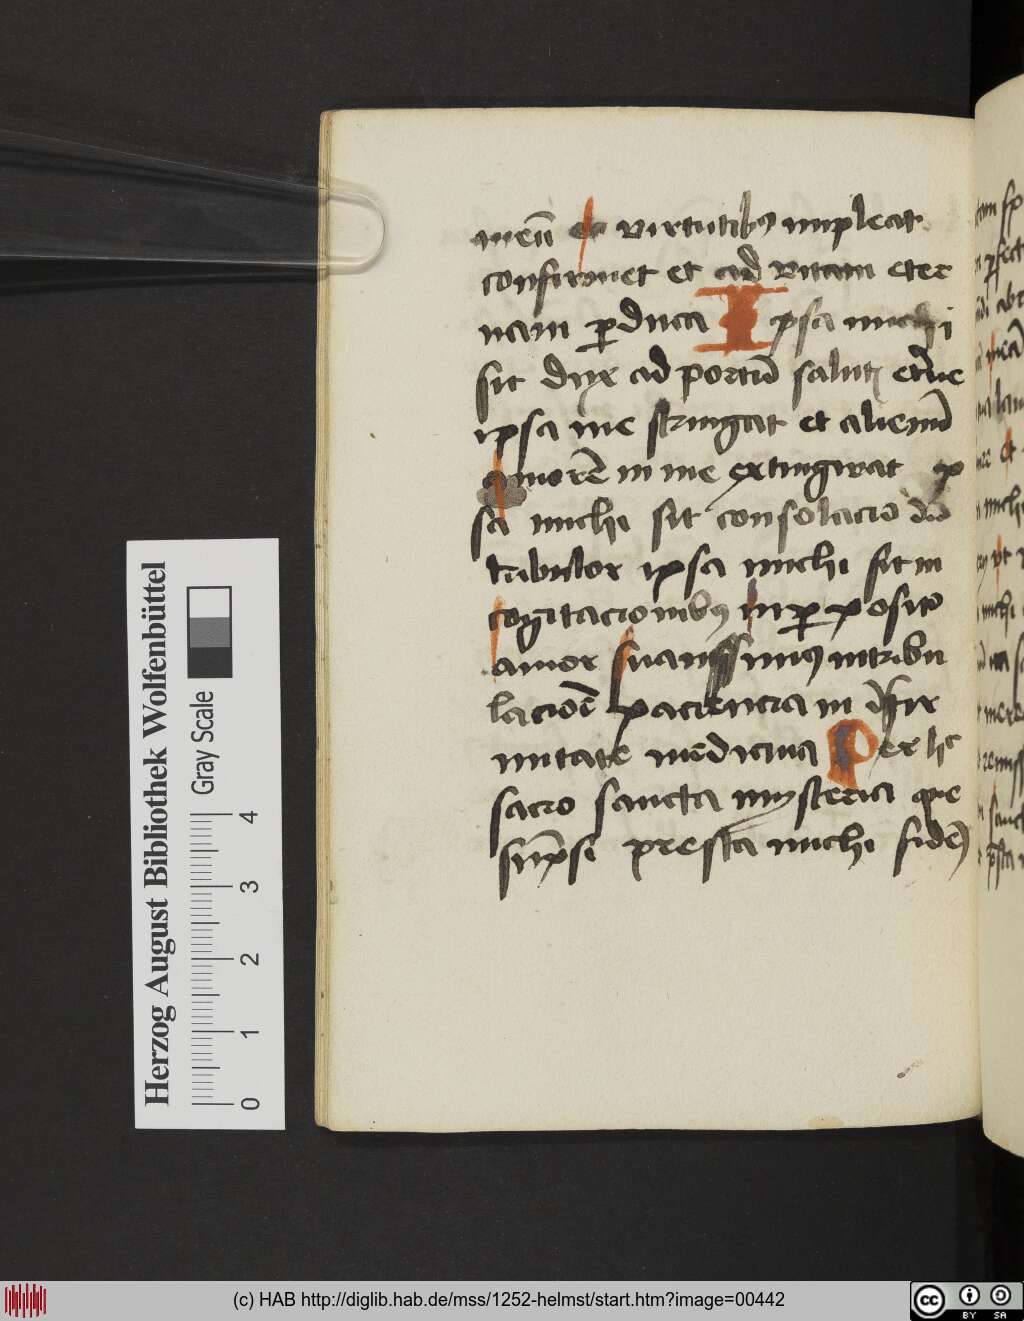 meū et virtutibꝰ impleat
confirmet et ad vitam eter
nam ꝑduca Ipsa michi
sit dux ad portū salutꝭ et̄ne
ipsa me stringat et alienū
amorē in me extingwat ip
sa michi sit consolacio dū
tribulor ipsa michi sit in
cogitacionibꝰ in ꝓposito
amor suauissimꝰ in tribu
lacioē paciencia in īfir
mitate medicina Per h̄
sacro sancta mysteria que
sūpsi presta michi fidē
Herzog August Bibliothek Wolfenbüttel
Gray Scale
0 1 2 3 4
(c) HAB http://diglib.hab.de/mss/1252-helmst/start.htm?image=00442
cc BY SA